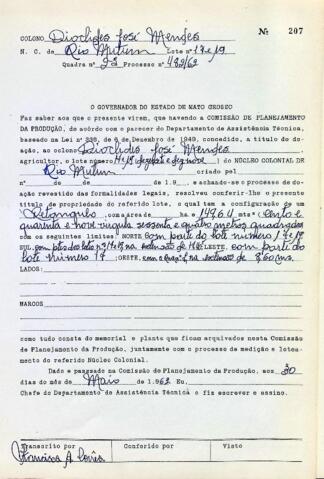 Nº 207
COLONO Dioclides José Mendes
N. C. de Rio Mutum Lote nº 17 e 19
Quadra nº 2ª Processo nº 482/62
O GOVERNADOR DO ESTADO DE MATO GROSSO
Faz saber aos que o presente virem, que havendo a COMISSÃO DE PLANEJAMENTO
DA PRODUÇÃO, de acôrdo com o parecer do Departamento de Assistência Técnica,
baseado na Lei nº 336, de 6 de Dezembro de 1949, concedido, a título do
doação, ao colono Dioclides José Mendes
agricultor, o lote número 17 e 19 dezessete e dezenove) do NÚCLEO COLONIAL DE
Rio Mutum criado pel
nº de de de 1.9 , e achando-se o processo de
doação revestido das formalidades legais, resolveu conferir-lhe o presente
título de propriedade do referido lote, o qual tem a configuração de um
Retangulo com a área de ha e 149,64 mts² Cento e
quarenta e nove virgula sessenta e quatro metros quadrados
com os seguintes limites: NORTE com parte do lote número 17 e 19
SUL com LESTE, com parte do
lote número 17 : OESTE, com na extensão de 8,60 ms.
LADOS:
MARCOS
como tudo consta do memorial e planta que ficam arquivados nesta Comissão
de Planejamento da Produção, juntamente com o processo de medição e loteamento
do referido Núcleo Colonial.
Dado e passado na Comissão de Planejamento da Produção, aos 30
dias do mês de Maio de 1.962 Eu,
Chefe do Departamento de Assistência Técnica o fiz escrever e assino.
Transcrito por Conferido por Visto
Francisca A.